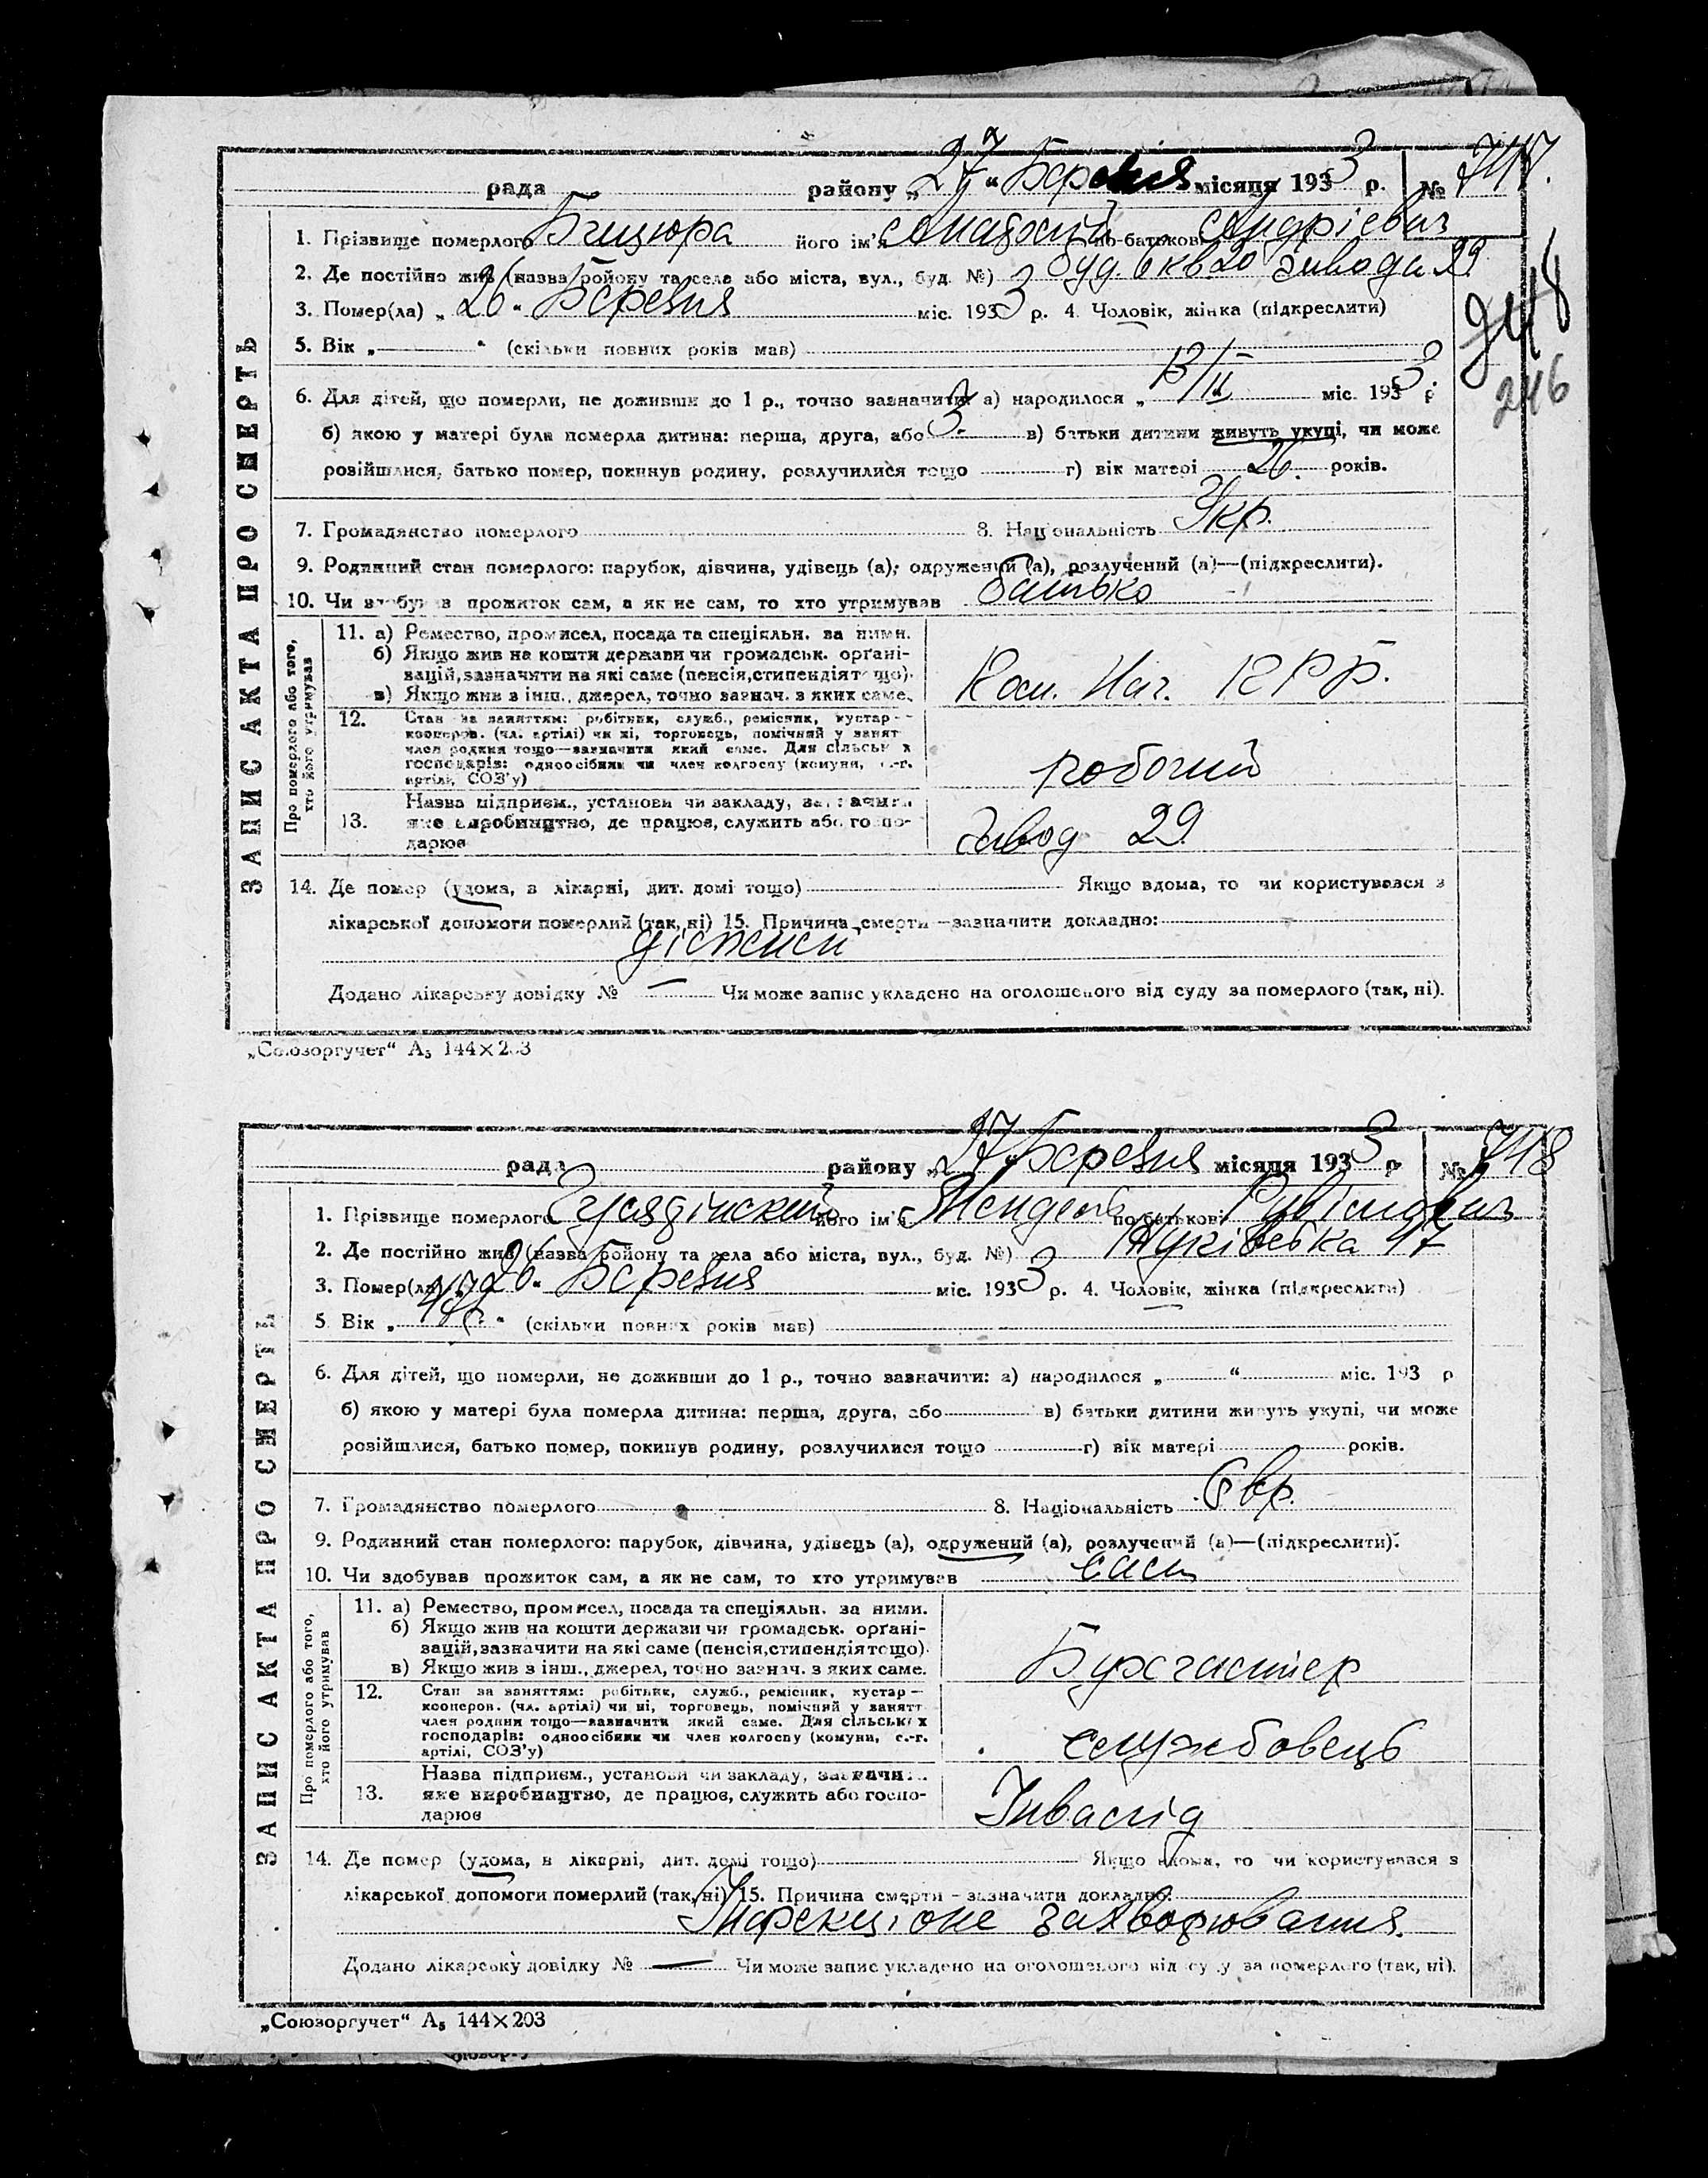 рада району „27“ Березня місяця 1933 р. № 717.
1. Прізвище померлого його ім'я Анатолій по-батькові Андрієвич
2. Де постійно жив (назва району та села або міста, вул., буд. №) буд 6 кв 20 завода 29
3. Помер(ла) „26“ Березня міс. 1933 р. 4. Чоловік, жінка (підкреслити)
248
5. Вік „ “ (скільки повних років мав)
246
6. Для дітей, що померли, не доживши до 1 р., точно зазначити: а) народилося „13/II міс. 1933 р
б) якою у матері була померла дитина: перша, друга, або 3. в) батьки дитини живуть укупі, чи може
розійшлися, батько помер, покинув родину, розлучилися тощо г) вік матері 26. років.
7. Громадянство померлого 8. Національність Укр.
9. Родинний стан померлого: парубок, дівчина, удівець (а), одружений (а), розлучений (а)—(підкреслити).
10. Чи здобував прожиток сам, а як не сам, то хто утримував батько
ЗАПИС АКТА ПРО СМЕРТЬ
Про померлого або того, хто його утримував
11. а) Ремество, промисел, посада та спеціяльн. за ними.
б) Якщо жив на кошти держави чи громадськ. орґані-
зацій, зазначити на які саме (пенсія, стипендія тощо).
в) Якщо жив з інш., джерел, точно зазнач. з яких саме.
Нач.
12. Стан за заняттям: робітник, служб., ремісник, кустар—
кооперов. (чл. артілі) чи ні, торговець, помічний у занят
член родини тощо—зазначити який саме. Для сільських
господарів: одноосібник чи член колгоспу (комуни, с.-г.
артілі, СОЗ'у)
робочий
13. Назва підприєм., установи чи закладу, зазначити
яке виробництво, де працює, служить або госпо-
дарює
Завод 29
14. Де помер (удома, в лікарні, дит. домі тощо) Якщо вдома, то чи користувався з
лікарської допомоги померлий (так, ні) 15. Причина смерти—зазначити докладно:
Додано лікарську довідку № — Чи може запис укладено на оголошеного від суду за померлого (так, ні).
„Союзоргучет“ А₅ 144×203
рада району „27“ Березня місяця 1933 р № 718
1. Прізвище померлого його ім'я Мендель по-батькові Рувімович
2. Де постійно жив (назва району та села або міста, вул., буд. №) 47
3. Помер(ла) „26“ Березня міс. 1933 р. 4. Чоловік, жінка (підкреслити)
5. Вік „ “ (скільки повних років мав)
6. Для дітей, що померли, не доживши до 1 р., точно зазначити: а) народилося „ “ міс. 193 р
б) якою у матері була померла дитина: перша, друга, або в) батьки дитини живуть укупі, чи може
розійшлися, батько помер, покинув родину, розлучилися тощо г) вік матері років.
7. Громадянство померлого 8. Національність Євр.
9. Родинний стан померлого: парубок, дівчина, удівець (а), одружений (а), розлучений (а)—(підкреслити).
10. Чи здобував прожиток сам, а як не сам, то хто утримував сам
ЗАПИС АКТА ПРО СМЕРТЬ
Про померлого або того, хто його утримував
11. а) Ремество, промисел, посада та спеціяльн. за ними.
б) Якщо жив на кошти держави чи громадськ. орґані-
зацій, зазначити на які саме (пенсія, стипендія тощо).
в) Якщо жив з інш., джерел, точно зазнач. з яких саме.
12. Стан за заняттям: робітник, служб., ремісник, кустар—
кооперов. (чл. артілі) чи ні, торговець, помічний у занятт
член родини тощо—зазначити який саме. Для сільських
господарів: одноосібник чи член колгоспу (комуни, с.-г.
артілі, СОЗ'у)
службовець
13. Назва підприєм., установи чи закладу, зазначити
яке виробництво, де працює, служить або госпо-
дарює
Інвалід
14. Де помер (удома, в лікарні, дит. домі тощо) Якщо вдома, то чи користувався з
лікарської допомоги померлий (так, ні) 15. Причина смерти—зазначити докладно:
Інфекціоне захворювання.
Додано лікарську довідку № — Чи може запис укладено на оголошеного від суду за померлого (так, ні).
„Союзоргучет“ А₅ 144×203